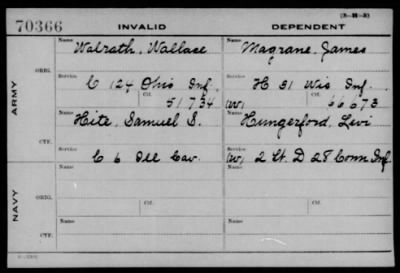 (3-11-3)
70366 INVALID DEPENDENT
Name Name
Walrath, Wallace Magrane, James
ORIG.
Service Service
C 124 Ohio Inf. H 31 Wis Inf.
Ctf. Ctf.
51734 (W) 66673
ARMY
Name Name
Hite, Samuel S. Hungerford, Levi
CTF.
Service Service
C 6 Ill Cav. (W) 2 Lt. D 28 Conn Inf
Name Name
ORIG.
Service Ctf. Service Ctf.
NAVY
Name Name
CTF.
Service Service